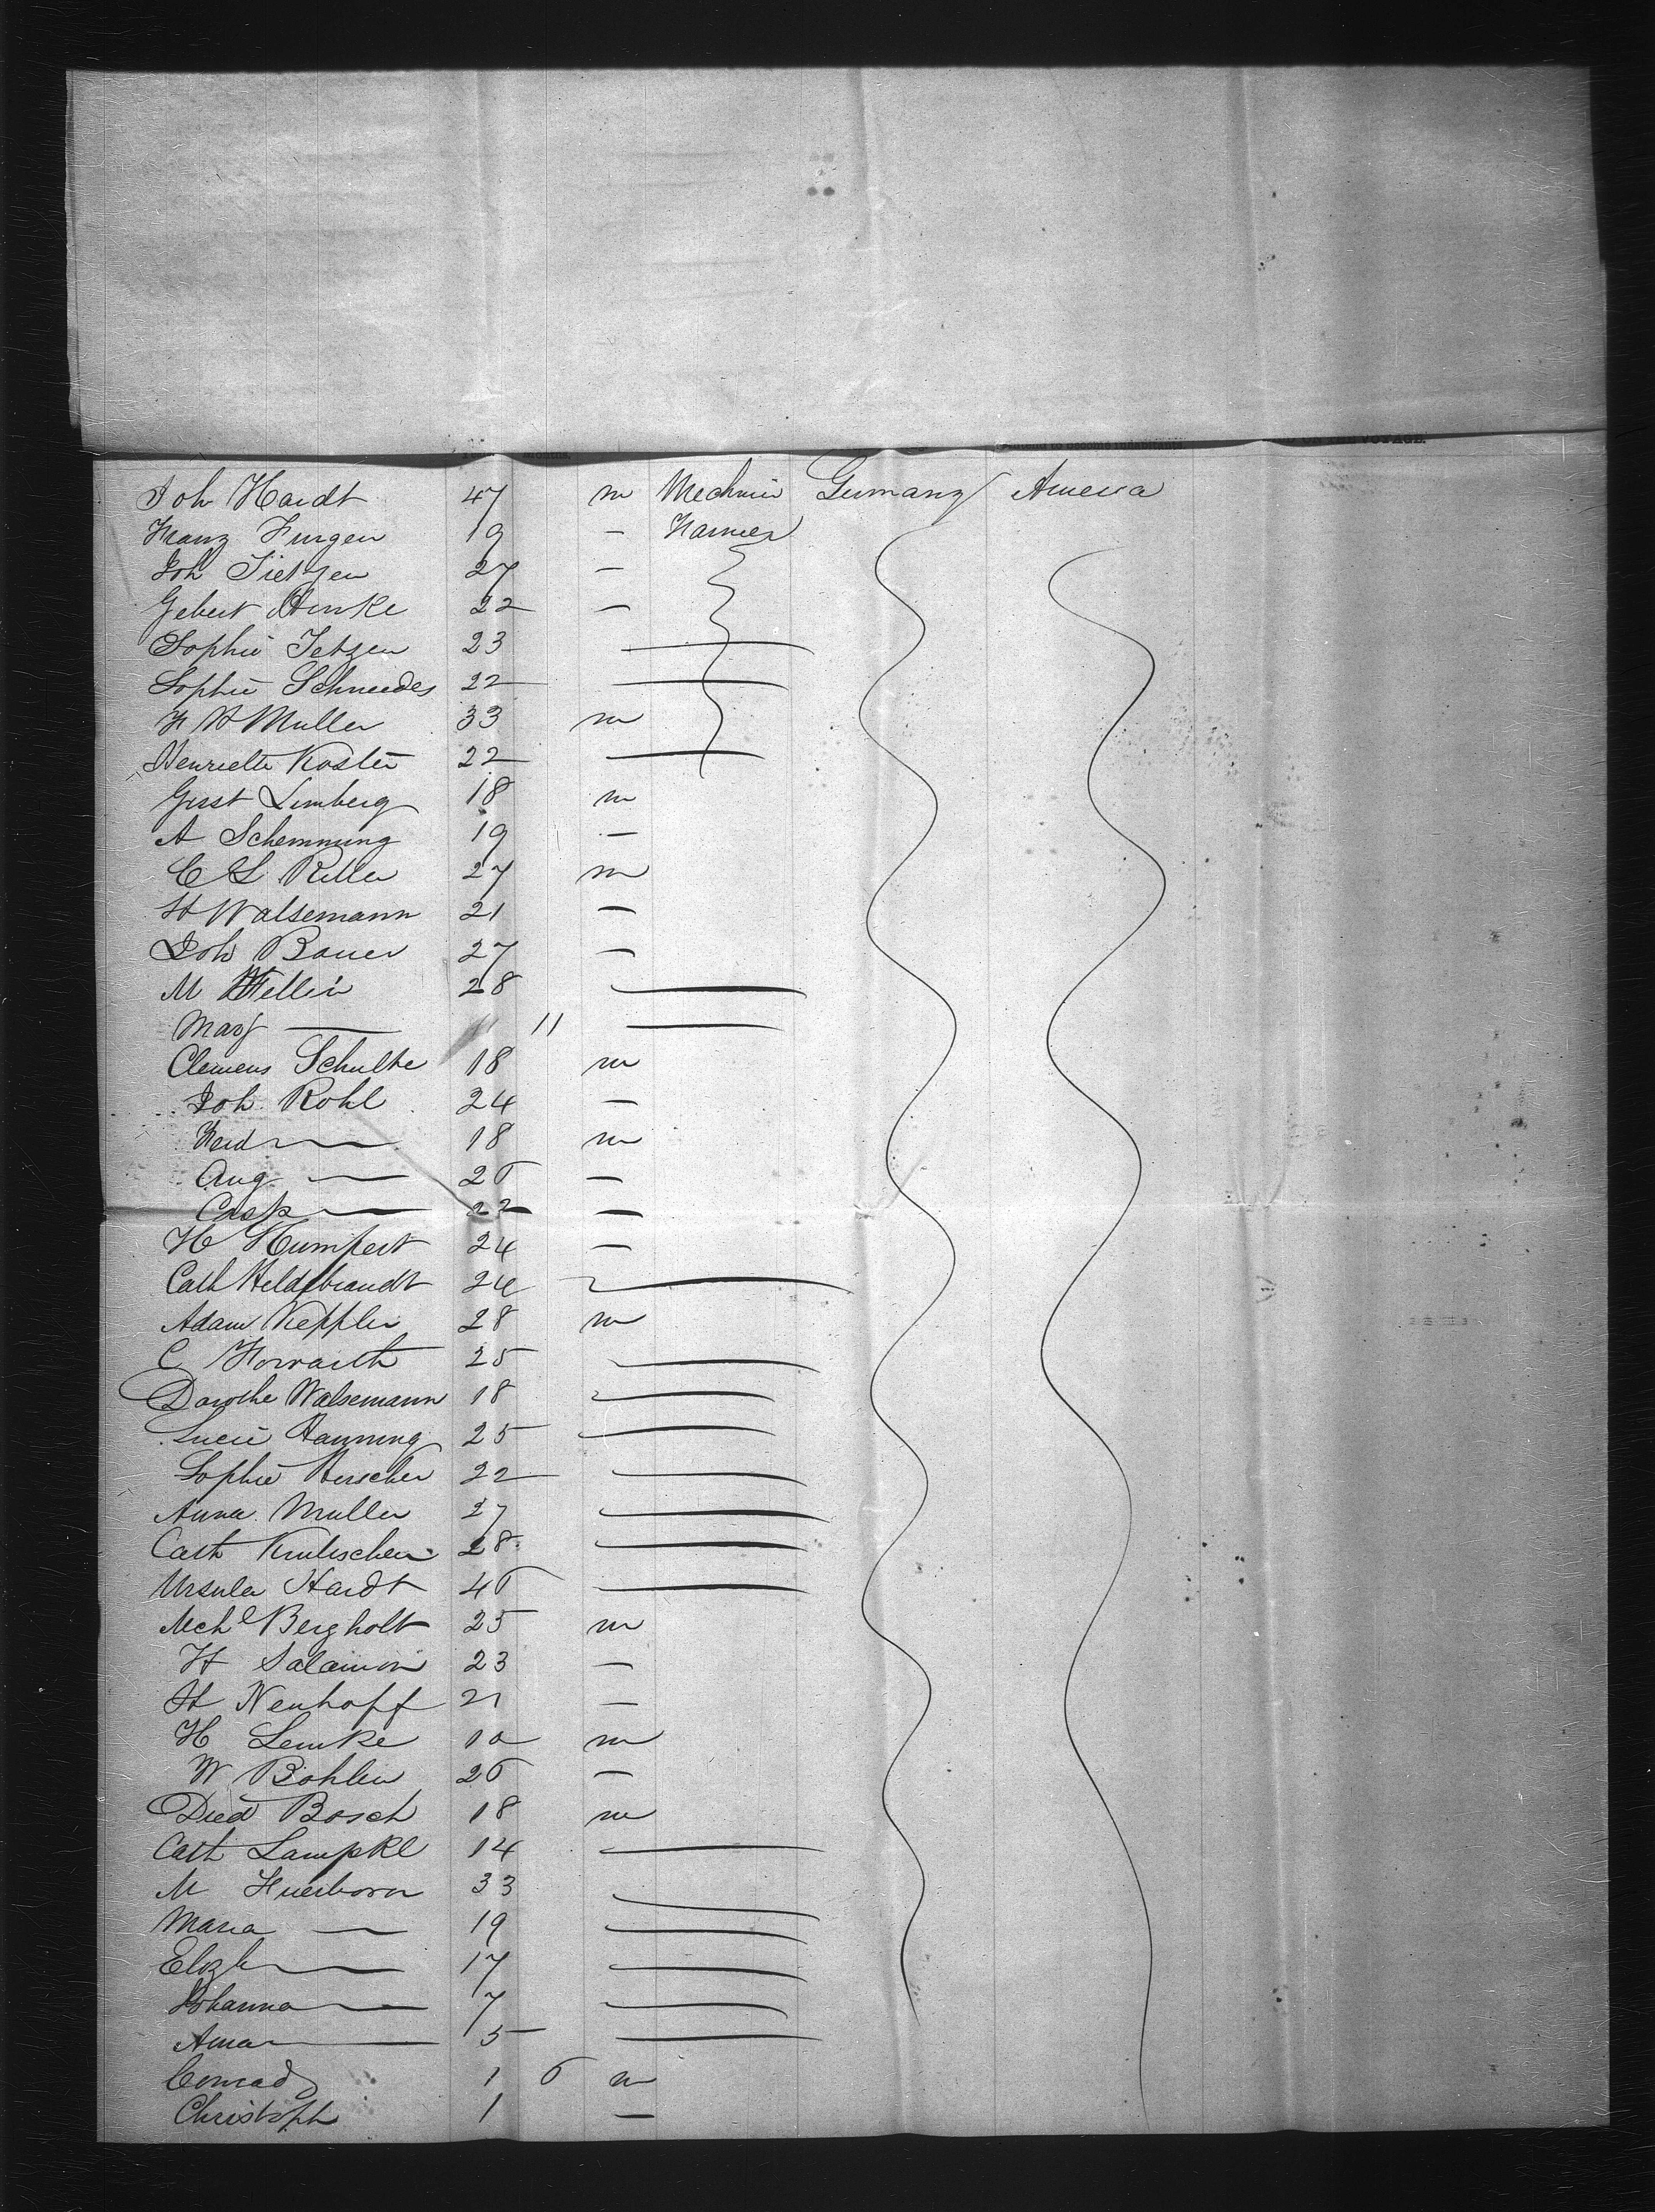 Joh Hardt 47 m Mechnic Germany America
Franz Jurgen 19 — Farmer
Joh Tietzen 27 —
Gebert Henke 22 —
Sophie Tetzen 23
Sophie Schneeder 22
F H Muller 33 m
Henriette Koster 22
Gust Limberg 18 m
A Schemming 19 —
C L Reller 27 m
H Walsemann 21 —
Joh Bauer 27 —
M Wellin 28
Mary — 11
Clemens Schulte 18 m
Joh Rohl 24 —
Ferd — 18 m
Aug — 26 —
Casp — 22 —
H Humpert 24 —
Cath Heldebrandt 24
Adam Keppler 28 m
C Horvarth 25
Dorothe Walsemann 18
Lucie Hanning 25
Sophie Herscher 22
Anna Muller 27
Cath 28
Ursula Hardt 46
Mchl Bergholt 25 m
H Salamon 23 —
H Neuhoff 21 —
H Lemke 10 m
W Bohlen 26 —
Died Bosch 18 m
Cath Lampke 14
M 33
Maria — 19
Elozb — 17
Johanna — 7
Anna — 5
Conrad 1 6 m
Christoph 1 —